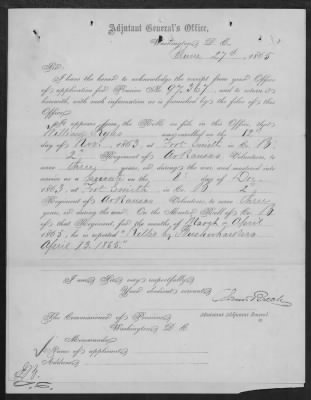 Adjutant General's Office,
Washington, D. C.
June 27th, 1865
Sir:
I have the honor to acknowledge the receipt from your Office
of application for Pension No. 97,267, and to return it
herewith, with such information as is furnished by the files of this
Office.
It appears from the Rolls on file in this Office, that
William was enrolled on the 12th
day of Nov., 1863, at Fort Smith in Co. B,
2d Regiment of Arkansas Volunteers, to
serve three years, or during the war, and mustered into
service as a on the day of Dec,
1863, at Fort Smith, in Co. B, 2d
Regiment of Arkansas Volunteers, to serve three
years, or during the war. On the Muster Roll of Co. B
of that Regiment, for the months of March & April,
1865, he is reported "Killed by Bushwhackers
April 13, 1865."
I am, Sir, very respectfully,
Your obedient servant,
Assistant Adjutant General.
The Commissioner of Pensions,
Washington, D. C.
Memoranda:
Name of applicant,
Address,